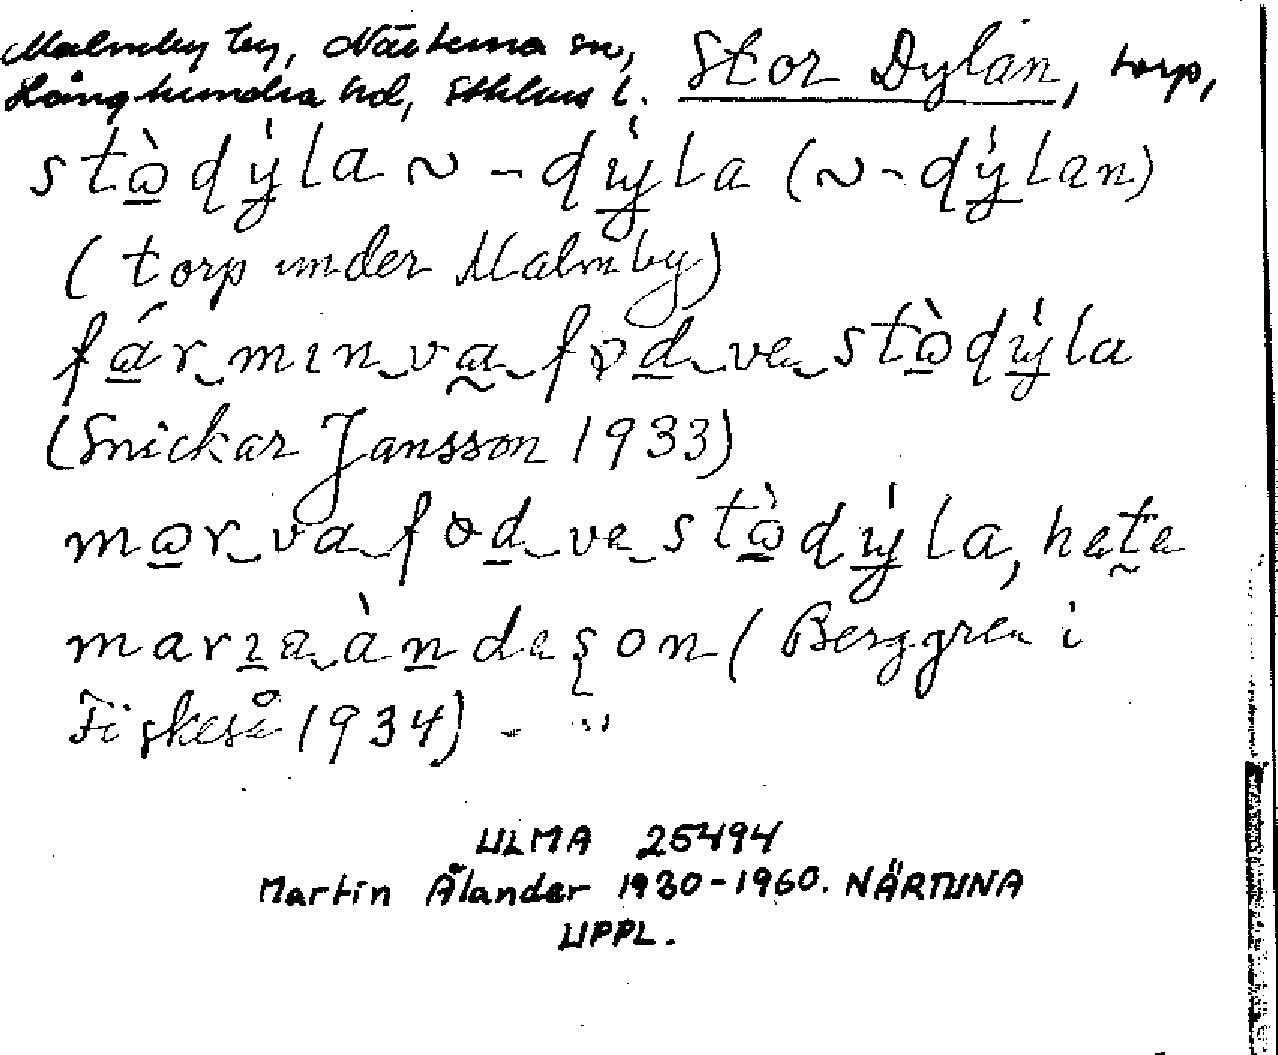 Malmby by, Närtuna sn, Stor Dylan, torp,
Långhundra hd, Sthlms l.
stɷ̀dýla ~ -dýla (~ -dýlan)
(torp under Malmby)
fár mın va fød ve stɷ̀dýla
(Snickar Jansson 1933)
mɷr va fød ve stɷ̀dýla, hete
marıa àndeşon (Berggren i
Fiskeså 1934) - "
ULMA 25494
Martin Ålander 1930-1960. NÄRTUNA
UPPL.